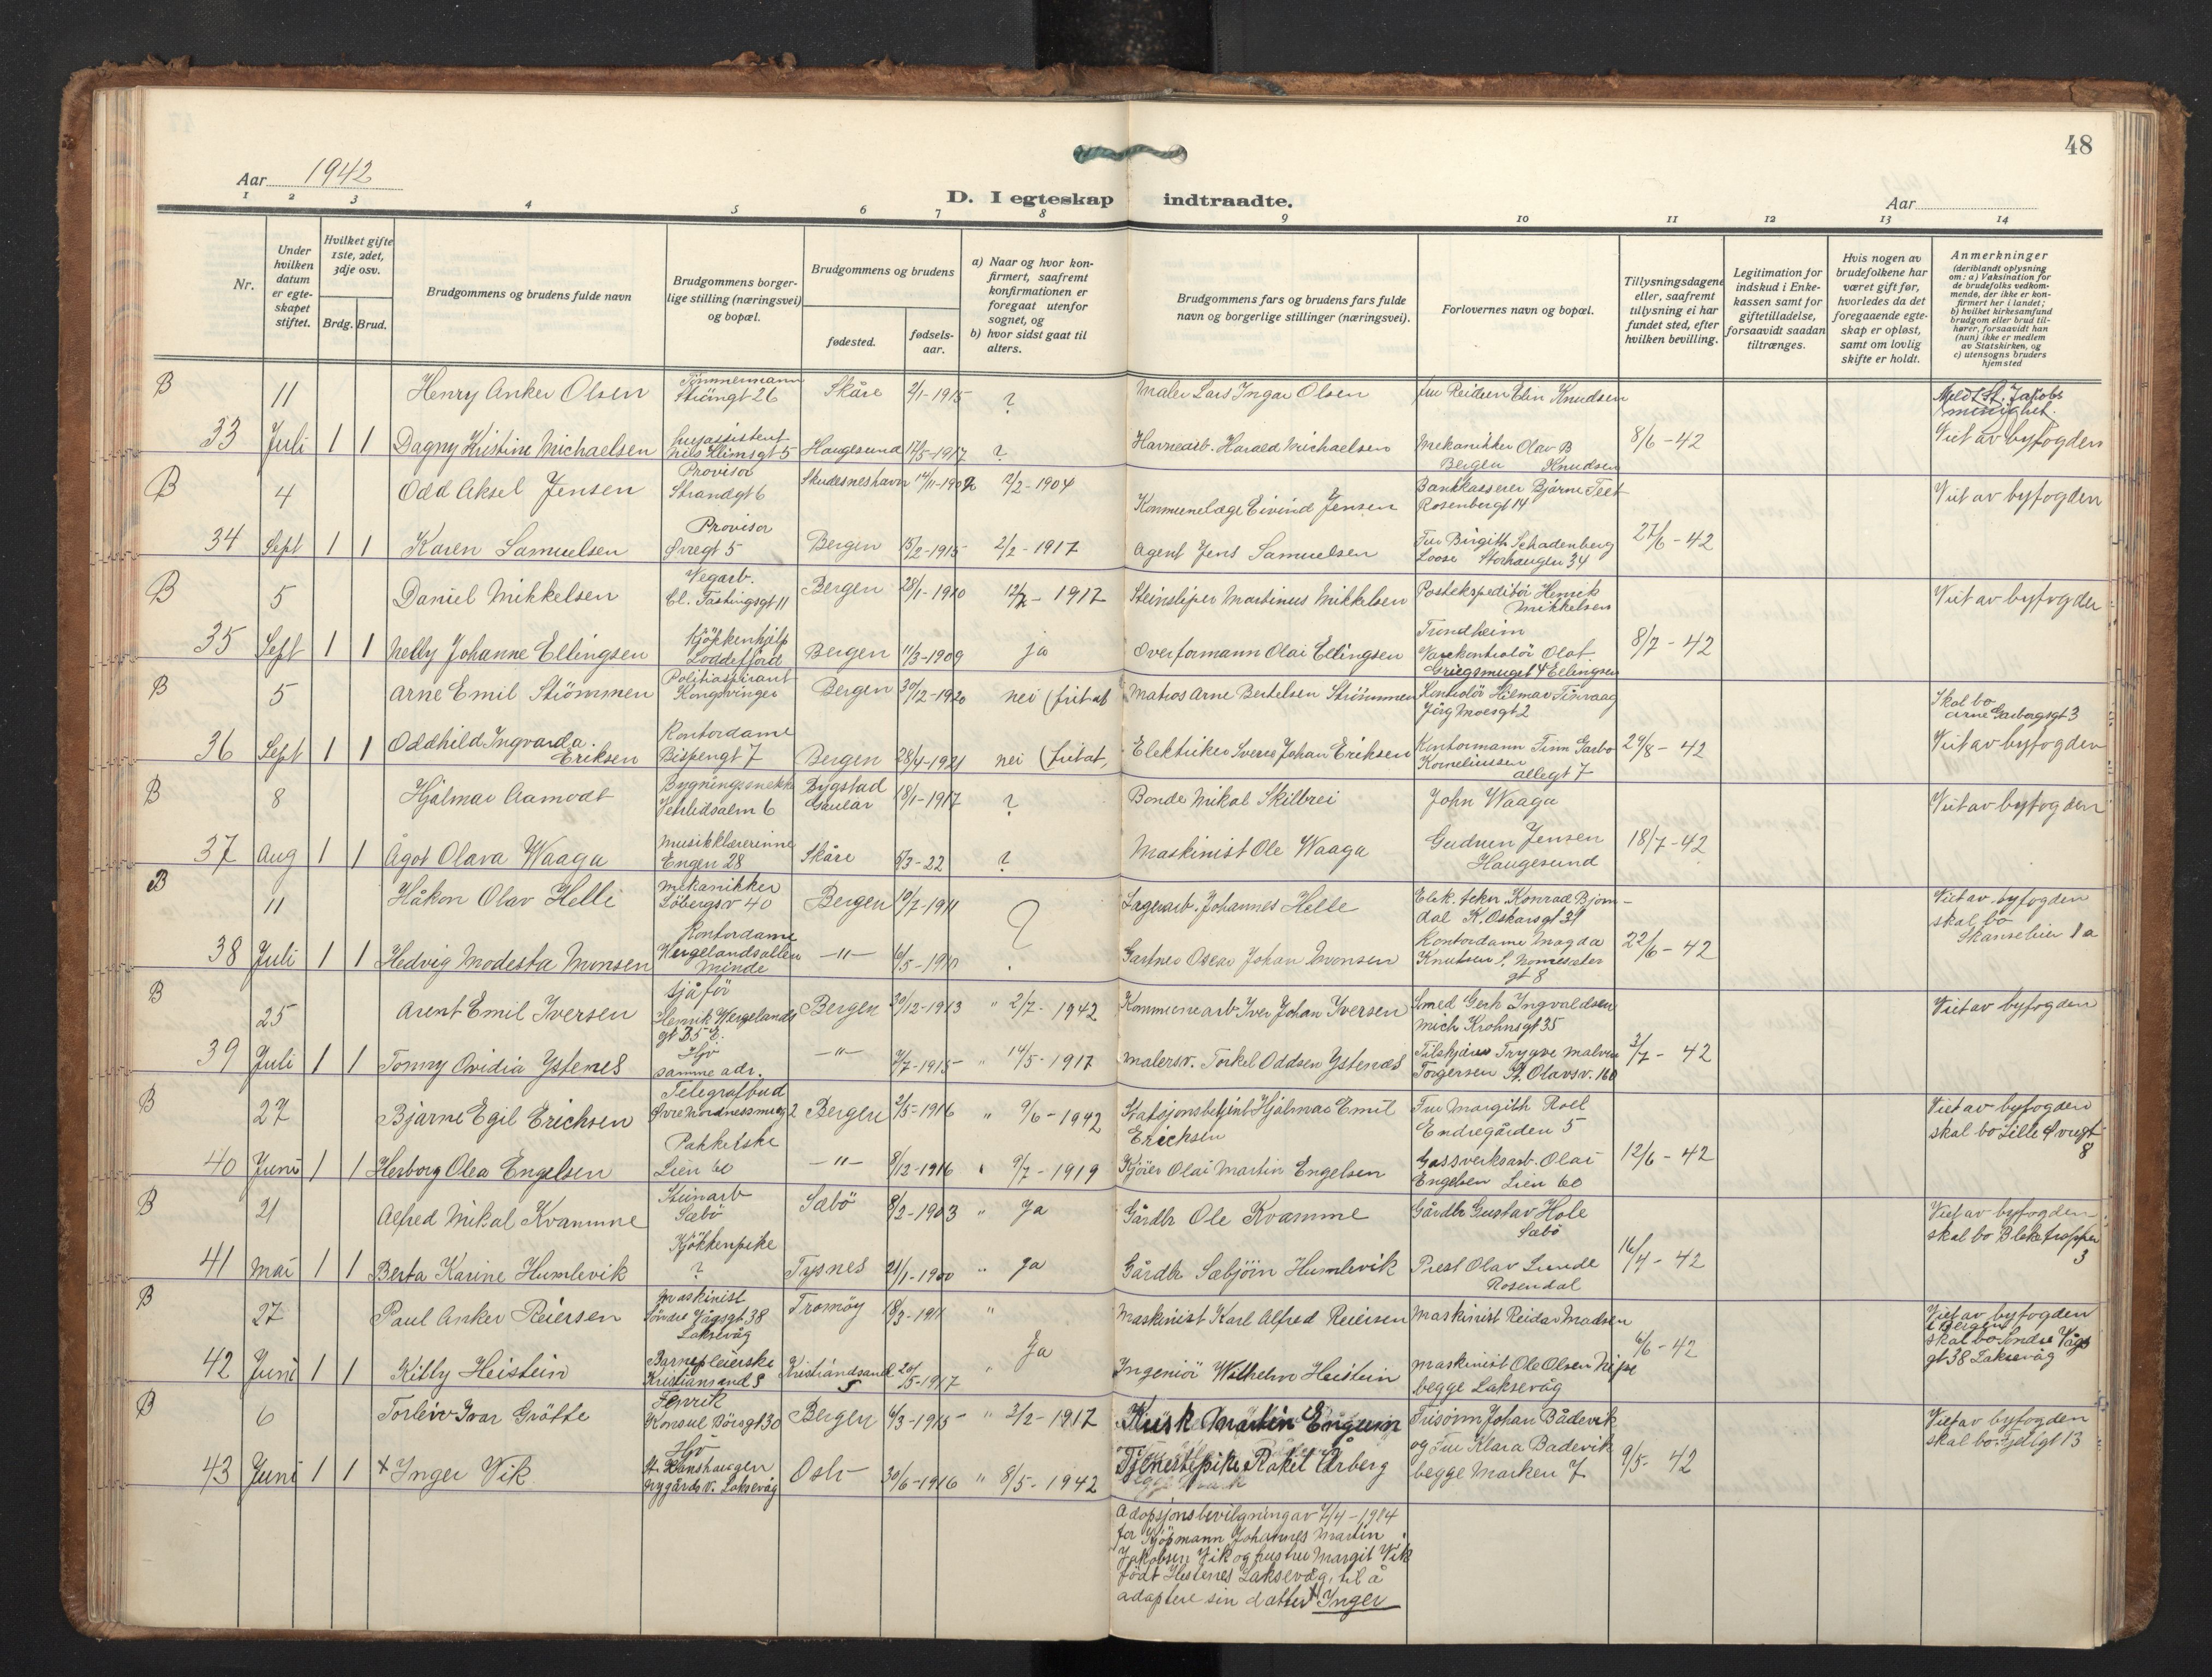 48
Aar 1942
D. I egteskap indtraadte.
Aar
1 2 3 4 5 6 7 8 9 10 11 12 13 14
Nr.
Under hvilken datum er egteskapet stiftet.
Hvilket gifte 1ste, 2det, 3dje osv.
Brdg. Brud.
Brudgommens og brudens fulde navn
Brudgommens borgerlige stilling (næringsvei) og bopæl.
Brudgommens og brudens
fødested.
fødselsaar.
a) Naar og hvor konfirmert, saafremt konfirmationen er foregaat utenfor sognet, og
b) hvor sidst gaat til alters.
Brudgommens fars og brudens fars fulde navn og borgerlige stillinger (næringsvei).
Forlovernes navn og bopæl.
Tillysningsdagene eller, saafremt tillysning ei har fundet sted, efter hvilken bevilling.
Legitimation for indskud i Enkekassen samt for giftetilladelse, forsaavidt saadan tiltrænges.
Hvis nogen av brudefolkene har været gift før, hvorledes da det foregaaende egteskap er opløst, samt om lovlig skifte er holdt.
Anmerkninger (deriblandt oplysning om: a) Vaksination for de brudefolks vedkommende, der ikke er konfirmert her i landet; b) hvilket kirkesamfund brudgom eller brud tilhører, forsaavidt han (hun) ikke er medlem av Statskirken, og c) utensogns bruders hjemsted
B 11 Henry Anker Olsen Tömmermann Strangt 26 Skåre 2/1-1915 ? Maler Lars Ingar Olsen fru Reidun Elin Knudsen Meldt St. Jakobs menighet.
33 Juli 1 1 Dagny Kristine Michaelsen husassistent Nils Klimsgt 5 Haugesund 17/5-1917 ? Havnearb. Harald Michaelsen Mekanikker Olav B Knudsen Bergen 8/6-42 Viet av byfogden
B 4 Odd Aksel Jensen Provisor Strandgt 6 Skudesneshavn 14/11-1902 2/2-1904 Kommunelæge Eivind Jensen Bankkasserer Bjarne Teet Rosenbergt 14 Viet av byfogden
34 Sept 1 1 Karen Samuelsen Provisor Øvregt 5 Bergen 15/2-1915 2/2-1917 Agent Jens Samuelsen Fru Birgith Schadenberg Loose Storhaugen 34 27/6-42
B 5 Daniel Mikkelsen Vegarb. Cl. Fastingsgt 11 Bergen 28/1-1910 12/2-1917 Steinsliper Martinus Mikkelsen Postekspeditör Henrik Mikkelsen Viet av byfogden
35 Sept 1 1 Nelly Johanne Ellingsen Kjökkenhjelp Loddefjord Bergen 11/3-1909 ja Overformann Olai Ellingsen Trondheim Varekontrolör Olaf Griegsmuget 4 Ellingsen 8/7-42
B 5 Arne Emil Strömmen Politiaspirant Kongsvinger Bergen 30/12-1920 nei (fritat Matros Arne Bertelsen Strömmen Kontrolör Hilmar Tinvaag Jörg Moesgt 2 Skal bo Arne Garborgsgt 3
36 Sept 1 1 Oddhild Ingvarda Eriksen Kontordame Bispengt 7 Bergen 28/4-1921 nei (fritat, Elektriker Sverre Johan Eriksen Kontormann Finn Garbo Korneliussen allegt 7 29/8-42 Viet av byfogden
B 8 Hjalmar Aamodt Bygningssnekk Vetrlidsalm 6 Bygstad Gaular 18/1-1917 ? Bonde Mikal Skilbrei John Waaga Viet av byfogden
37 Aug 1 1 Ågot Olava Waaga Musikklærerinne Engen 28 Skåre 5/3-22 ? Maskinist Ole Waaga Gudrun Jensen Haugesund 18/7-42
B 11 Håkon Olav Helle mekanikker Löbergsv 40 Bergen 19/7-1911 ? Lagerarb. Johannes Helle Elek. tekn Konrad Bjorndal K. Oskarsgt 31 Viet av byfogden skal bo Skansebien 1a
38 Juli 1 1 Hedvig Modesta Monsen Kontordame Wergelandsalleen Minde -"- 6/5-1910 Gartner Oscar Johan Monsen Kontordame Magda Knutsen S. Nomesæter gt 8 22/6-42
B 25 Arent Emil Iversen sjåför Henrik Wergelands gt 35 E. Bergen 30/12-1913 " 2/7-1942 Kommunearb Iver Johan Iversen Smed Gerh Ingvaldsen Mich Krohnsgt 35 Viet av byfogden
39 Juli 1 1 Tonny Ovidia Ystenes Hjv samme adr. -"- 7/7-1915 " 14/5-1917 malersv. Torkel Oddsen Ystenæs Tilskjærer Trygve Malvin Torgersen St. Olavsv. 160 3/7-42
B 27 Bjarne Egil Erichsen Telegrafbud Øvre Nordnessmug 2 Bergen 2/5-1916 " 9/6-1942 Stasjonsbetjent Hjalmar Emil Erichsen Fru Margith Roll Endregården 5 Viet av byfogden skal bo Lille Øvregt 8
40 Juni 1 1 Herborg Olea Engelsen Pakkerske Lien 60 -"- 8/12-1916 " 9/7-1919 Kjörer Olai Martin Engelsen Gassverksarb. Olai Engelsen Lien 60 12/6-42
B 21 Alfred Mikal Kvamme Steinarb Sæbö Sæbö 8/2-1903 " Ja Gårdbr Ole Kvamme Gårdbr Gustav Hole Sæbö Viet av byfogden skal bo Bleketrappen 3
41 Mai 1 1 Berta Karine Humlevik Kjökkenpike ? Tysnes 21/1-1900 " Ja Gårdbr Sæbjörn Humlevik Prest Olav Lunde Rosendal 16/4-42
B 27 Paul Anker Reiersen Maskinist Söndre Vågsgt 38 Laksevåg Tromöy 18/3-1911 " Maskinist Karl Alfred Reiersen Maskinist Reidar Madsen Viet av byfogden i Bergen skal bo Söndre Vågs gt 38 Laksevåg
42 Juni 1 1 Killy Heistein Barnepleierske Kristiansand S Kristiandsand S 20/5-1917 " Ja Ingeniör Wilhelm Heistein maskinist Ole Olsen Nipe begge Laksevåg 6/6-42
B 6 Torleiv Ivar Grötte Fenrik Konsul Börsgt 30 Bergen 6/3-1915 " 3/2-1917 Kusk Martin Engum Frisörm Johan Bådevik Viet av byfogden skal bo Fjeldgt 13
43 Juni 1 1 x Inger Vik Hjv St. Hanshaugen Nygårds v. Laksevåg Oslo 30/6-1916 " 8/5-1942 og Tjenestepike Rakel Årberg og Fru Klara Badevik begge Marken 7 9/5-42
Adopsjonsbevilgning av 7/4-1914
for Kjöpmann Johannes Martin
Jakobsen Vik og hustru Margit Vik
födt Hestenes Laksevåg, til å
adoptere sin datter x Inger